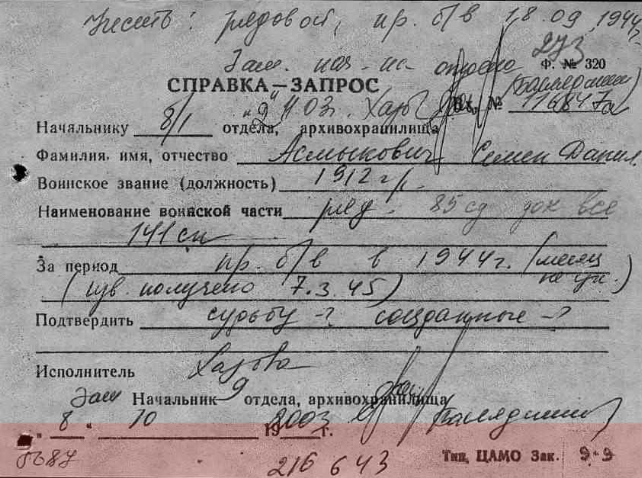 Учесть: рядовой, пр. б/в 18.09.1944г.
Зам. нач-ка отдела 273
Ф. № 320
СПРАВКА—ЗАПРОС
"2" 11 03г. Вх. № 116847а
Начальнику 8/1 отдела, архивохранилища
Фамилия, имя, отчество Асмыкович Семен Данил.
Воинское звание (должность) 1912 г/р.
Наименование воинской части ряд. 85 сд док все
141 сп
За период пр. б/в в 1944г. (месяц не ук.)
(изв. получено 7.3.45)
Подтвердить судьбу -? созданные -?
Исполнитель Харова
Зам Начальник 9 отдела, архивохранилища
"8" 10 2003 19 г.
216 643
Тип. ЦАМО Зак. 9-9